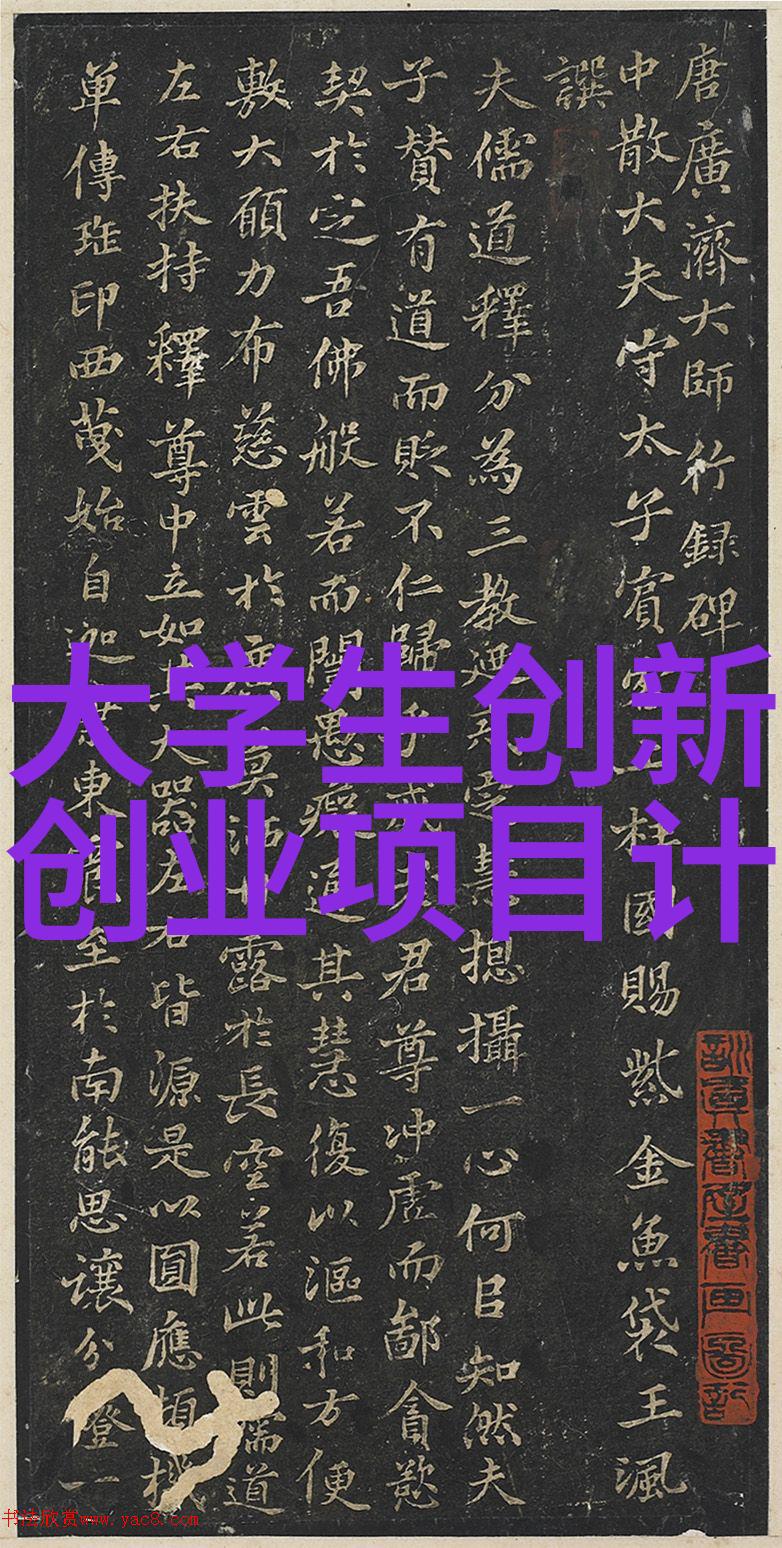 唐廣濟大師行録碑
中散大夫守太子賓 柱國賜紫金魚袋王渢
譔
夫儒道釋分為三教 慧揔攝一心何㠯知然夫
子賛有道而貶不仁歸乎 君尊冲虛而鄙貪慾
契於定吾佛般若而闇愚癡通其慧復以漚和方便
敷大願力布慈雲於 露於長空若此則儒道
左右扶持釋尊中立如其大器左右皆源是以圓應
單傳 印西 始自迦 東 至於南能思讓分燈一
大学生创新
创业项目计
书法欣赏www.yac8.com